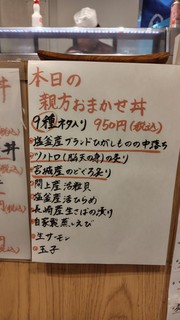 本日の
親方おまかせ丼
9種ネタ入り 950円(税込)
・塩釜産ブランドひがしもの中落ち
・ツノトロ(脳天の身)の炙り
・宮城産のどぐろ炙り
・閖上産 活粒貝
・塩釜産 活ひらめ
・長崎産生さばの漬り
・自家製蒸しえび
・生サーモン
・玉子
丼